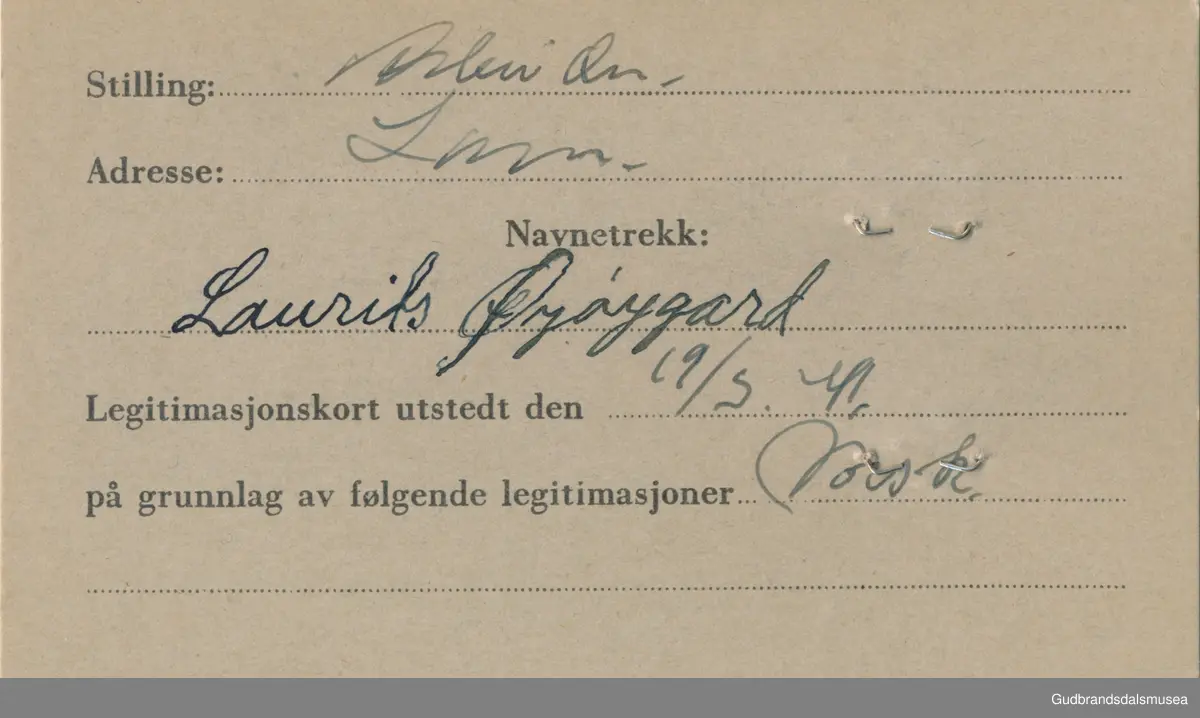 Stilling:
Adresse: Lom.
Navnetrekk:
Laurits Øyøygard
Legitimasjonskort utstedt den 19/5. 41.
på grunnlag av følgende legitimasjoner Norsk.
Gudbrandsdalsmusea